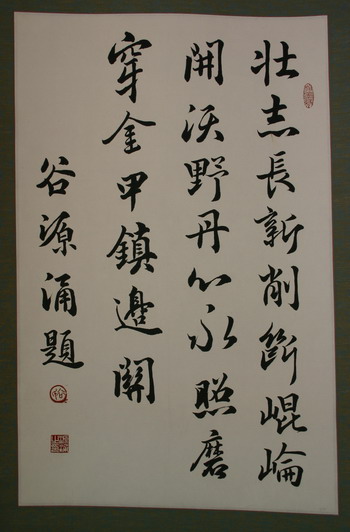 壮志長新削斷崐崘
開沃野丹心永照磨
穿金甲鎮邊關
谷源涌題